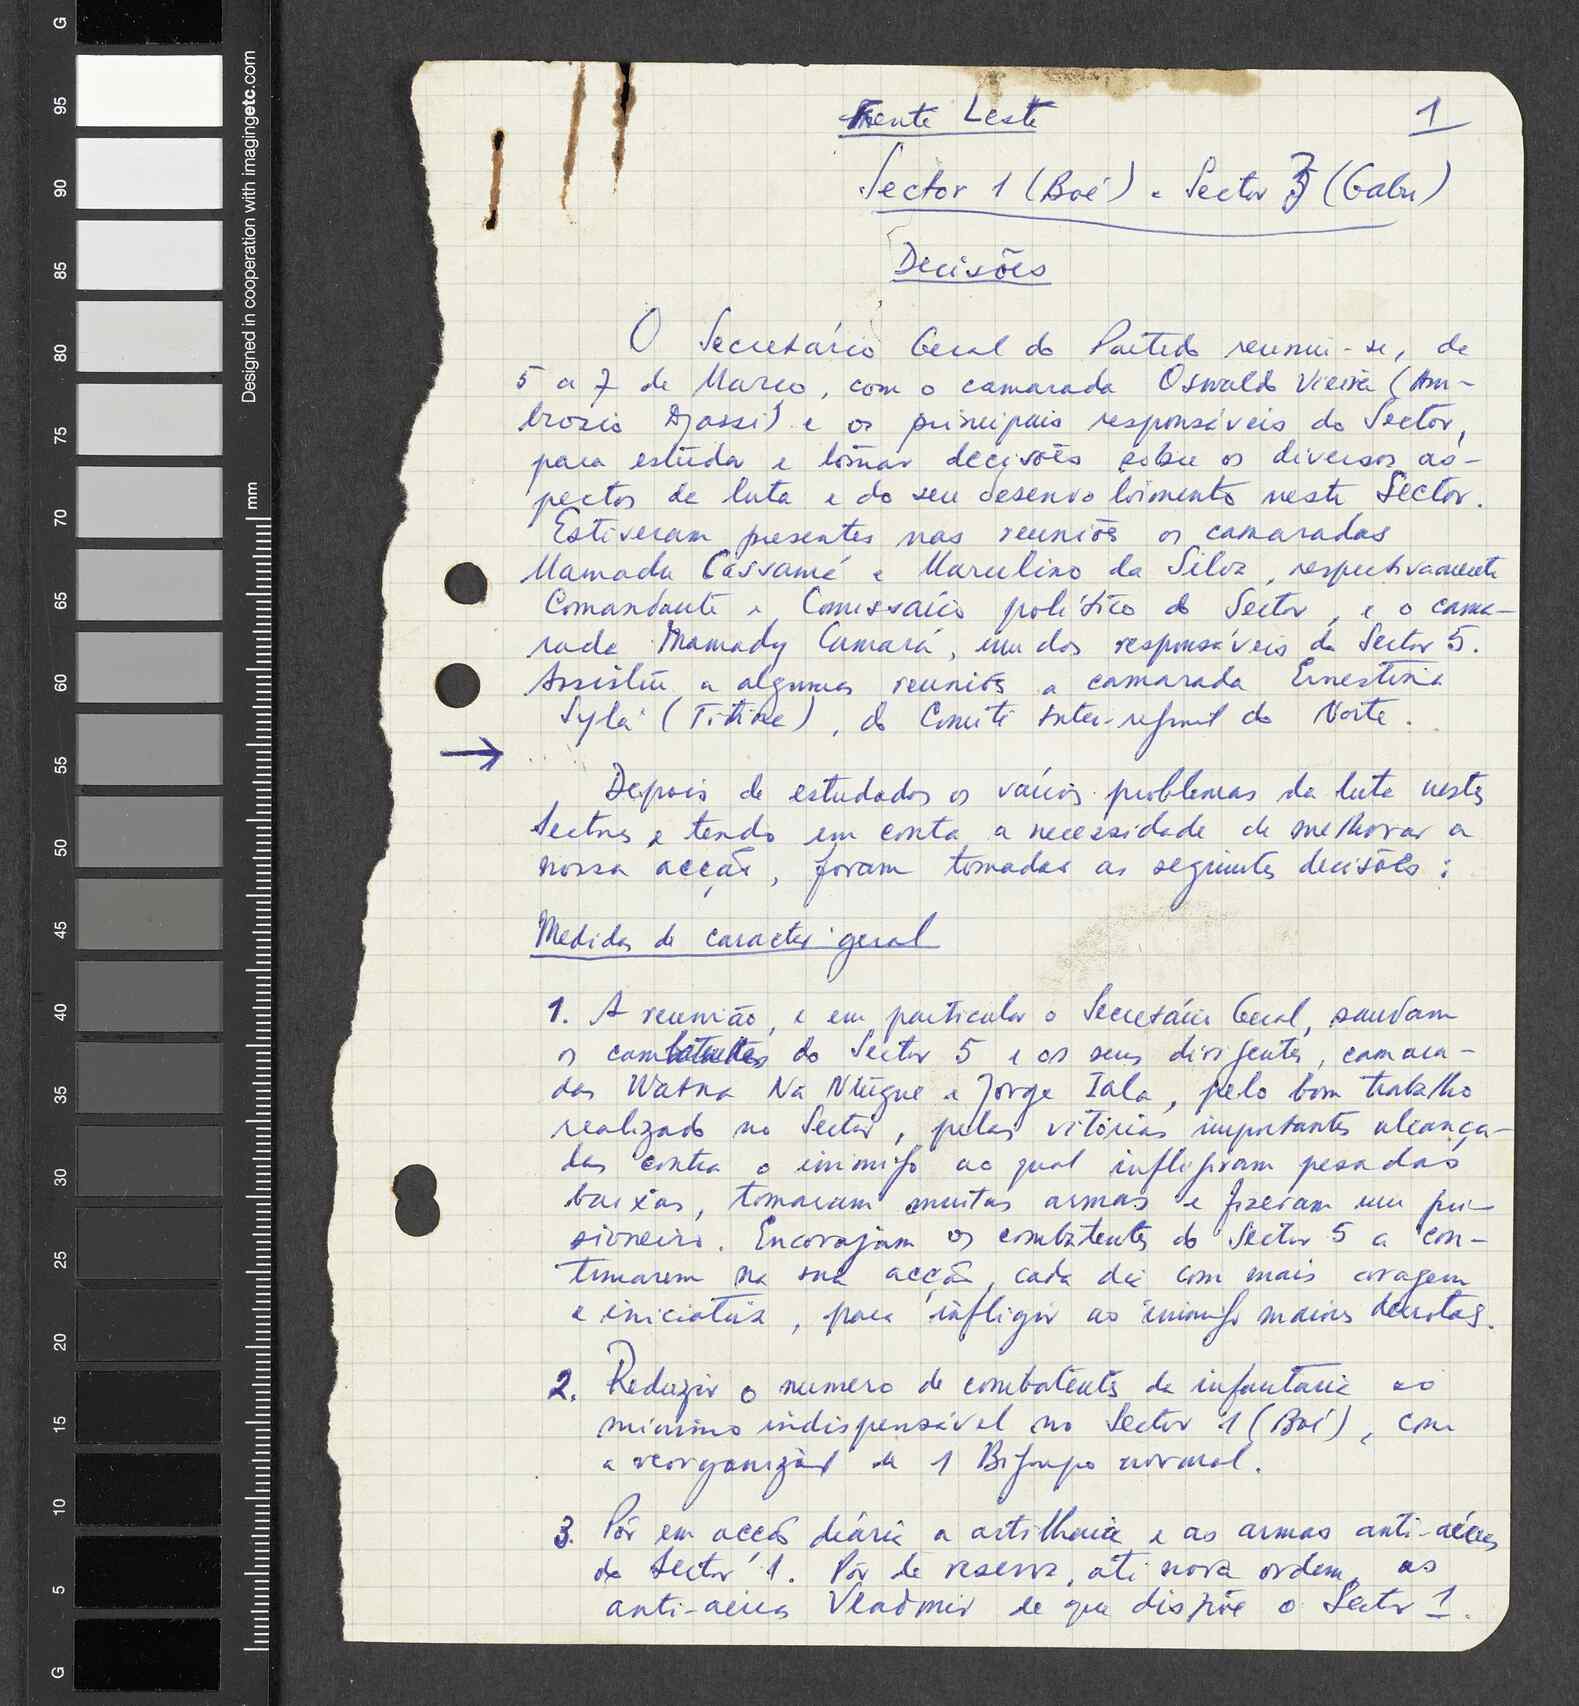 Frente Leste
1
Sector 1 (Boé) e Sector 5 (Gabu)
Decisões
O Secretário Geral do Partido reuniu-se, de
5 a 7 de Março, com o camarada Oswaldo Vieira (Am-
brosio Djassi) e os principais responsáveis do Sector,
para estudar e tomar decisões sobre os diversos as-
pectos da luta e do seu desenvolvimento neste Sector.
Estiveram presentes nas reuniões os camaradas
Mamadu Cassamá e Marcelino da Silva, respectivamente
Comandante e Comissário político do Sector, e o cama-
rada Mamady Camará, um dos responsáveis do Sector 5.
Assistiu a algumas reuniões a camarada Ernestina
Sylá (Titina), do Comité Inter-regional do Norte.
Depois de estudados os vários problemas da luta nestes
Sectores e tendo em conta a necessidade de melhorar a
nossa acção, foram tomadas as seguintes decisões:
Medidas de caracter geral
1. A reunião, e em particular o Secretário Geral, saudam
os combatentes do Sector 5 e os seus dirigentes, camara-
das Watna Na Ntugue e Jorge Iala, pelo bom trabalho
realizado no Sector, pelas vitórias importantes alcança-
das contra o inimigo ao qual infligiram pesadas
baixas, tomaram muitas armas e fizeram um pri-
sioneiro. Encorajam os combatentes do Sector 5 a con-
tinuarem na sua acção, cada dia com mais coragem
e iniciativa, para infligir ao inimigo maiores derrotas.
2. Reduzir o numero de combatentes da infantaria ao
mínimo indispensável no Sector 1 (Boé), com
a reorganização de 1 Bigrupo normal.
3. Pôr em acção diária a artilharia e as armas anti-aéreas
do Sector 1. Pôr de reserva, até nova ordem, as
anti-aéreas Vladimir de que dispõe o Sector 1.
Designed in cooperation with imagingetc.com
mm
G
95
90
85
80
75
70
65
60
55
50
45
40
35
30
25
20
15
10
5
G